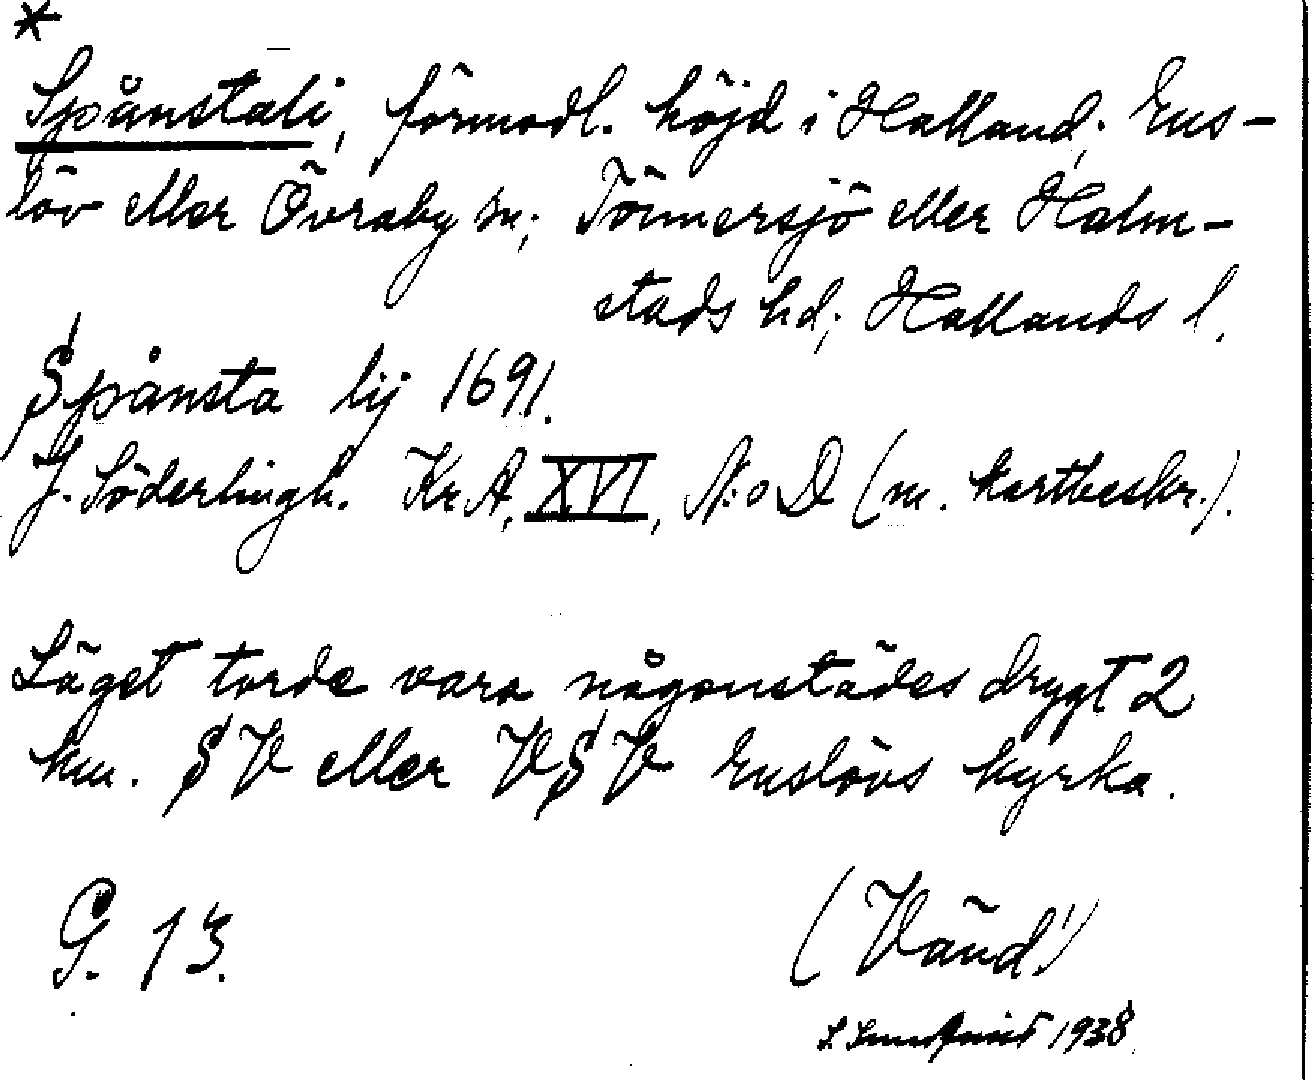 *
Spånstali, förmodl. höjd i Halland; Ens-
löv eller Övraby sn; Tönnersjö eller Halm-
stads hd; Hallands l.
Spånsta lij 1691.
J. Söderlingh. Kr.A, XVI, N:o D (m. kartbeskr.).
Läget torde vara någonstädes drygt 2
km. SV eller VSV Enslövs kyrka.
G. 13.
(Vänd!)
1938